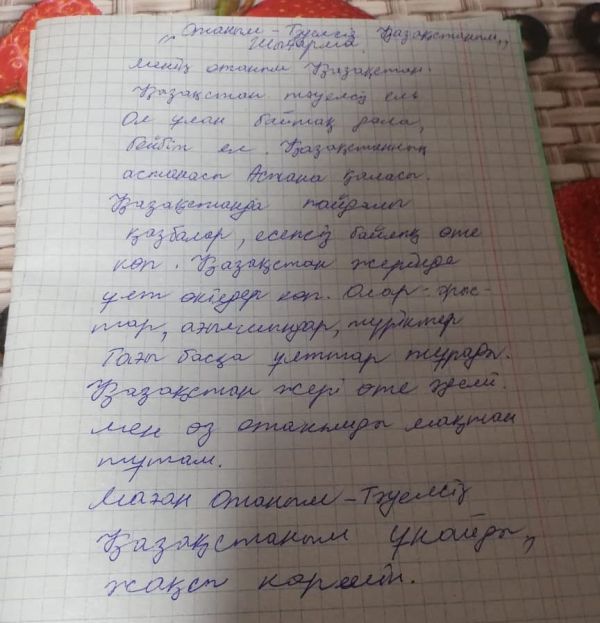 „Отаным - Тәуелсіз Қазақстаным„
Шығарма.
Менің отаным Қазақстан.
Қазақстан тәуелсіз ель
Ол ұлан байтақ дала,
бейбіт ел. Қазақстанның
астанасы Астана қаласы.
Қазақстанда пайдалы
қазбалар, есепсіз байлық өте
көп. Қазақстан жерінде
ұлт өкілдер көп. Олар - орыс-
тар, ағылшындар, түріктер
Тағы басқа ұлттар тұрады.
Қазақстан жері өте әдемі.
мен өз отанымды мақтан
тұтам.
Маған Отаным - Тәуелсіз
Қазақстаным ұнайды,
жақсы көремін.